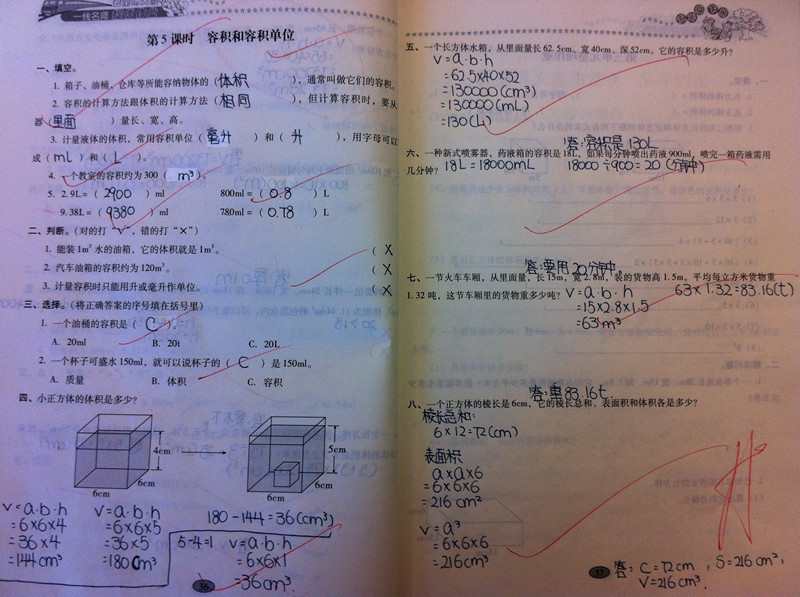 一线名师
第5课时 容积和容积单位
一、填空。
1. 箱子、油桶、仓库等所能容纳物体的(体积),通常叫做它们的容积。
2. 容积的计算方法跟体积的计算方法(相同),但计算容积时,要从
器(里面)量长、宽、高。
3. 计量液体的体积,常用容积单位(毫升)和(升),用字母可以
成(mL)和(L)。
4. 一个教室的容积约为300(m³)。
5. 2.9L=(2900)ml 800ml=(0.8)L
9.38L=(9380)ml 780ml=(0.78)L
二、判断。(对的打“√”,错的打“×”)
1. 能装1m³水的油箱,它的体积就是1m³。(X
2. 汽车油箱的容积约为120m³。(X
3. 计量容积时只能用升或毫升作单位。(X
三、选择。(将正确答案的序号填在括号里)
1. 一个油桶的容积是(C)。
A. 20ml B. 20t C. 20L
2. 一个杯子可盛水150ml,就可以说杯子的(C)是150ml。
A. 质量 B. 体积 C. 容积
四、小正方体的体积是多少?
4cm
6cm
6cm
5cm
6cm
6cm
180-144=36(cm³)
V=a·b·h
=6×6×4
=36×4
=144cm³
V=a·b·h
=6×6×5
=36×5
=180cm³
5-4=1 V=a·b·h
=6×6×1
=36cm³.
36
五、一个长方体水箱,从里面量长62.5cm、宽40cm、深52cm。它的容积是多少升?
V=a·b·h
=62.5×40×52
=130000(cm³)
=130000(mL)
=130(L)
答:容积是130L
六、一种新式喷雾器,药液箱的容积是18L,如果每分钟喷出药液900ml,喷完一箱药液需用
几分钟? 18L=18000mL 18000÷900=20(分钟)
答:要用20分钟。
七、一节火车车厢,从里面量,长15m,宽2.8m,装的货物高1.5m,平均每立方米货物重
1.32吨,这节车厢里的货物重多少吨? V=a·b·h 63×1.32=83.16(t)
=15×2.8×1.5
=63m³
答:重83.16t.
八、一个正方体的棱长是6cm,它的棱长总和、表面积和体积各是多少?
棱长总和:
6×12=72(cm)
表面积
a×a×6
=6×6×6
=216cm²
V=a³
=6×6×6
=216cm³
37
答:C=72cm,S=216cm²,
V=216cm³.